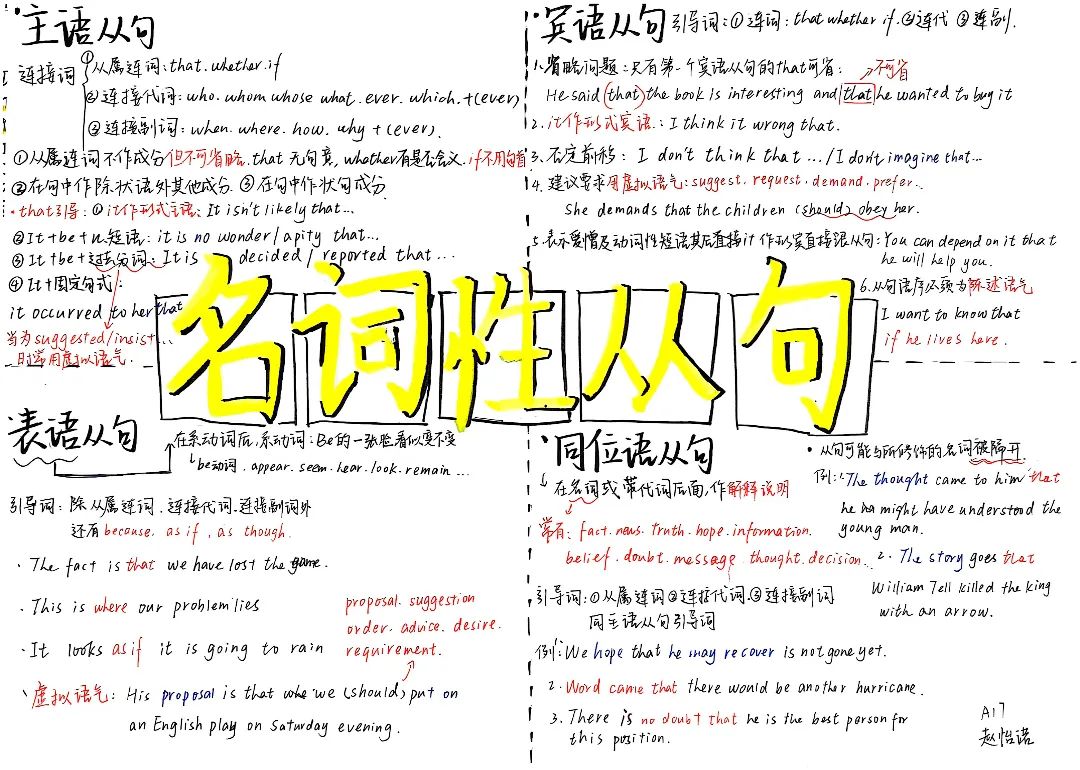 主语从句
连接词
①从属连词:that.whether.if
②连接代词:who.whom whose what.ever.which.+(ever)
③连接副词:when.where.how.why+(ever).
①从属连词不作成分但不可省略.that 无句意,whether有是否含义.if不用句首
②在句中作除状语外其他成分.③在句中作状句成分
·that引导:①it作形式主语:It isn't likely that...
②It+be+n短语:it is no wonder/apity that...
③It+be+过去分词:It is decided/reported that...
④It+固定句式:
it occurred to her that
当为suggested/insist...
时常用虚拟语气.
宾语从句
引导词:①连词:that whether if.②连代 ③连副.
1.省略问题:只有第一个宾语从句的that可省:
不可省
He said (that) the book is interesting and that he wanted to buy it
2.it作形式宾语:I think it wrong that.
3.否定前移:I don't think that.../I don't imagine that...
4.建议要求用虚拟语气:suggest.request.demand.prefer..
She demands that the children (should) obey her.
5.表示爱憎及动词性短语其后直接it作形宾直接跟从句:You can depend on it that
he will help you.
6.从句语序必须为陈述语气
I want to know that
if he lives here.
名词性从句
表语从句
在系动词后,系动词:Be的一张脸看似变不变
be动词.appear.seem.hear.look.remain...
引导词:除从属连词.连接代词.连接副词外
还有because.as if.as though.
·The fact is that we have lost the game.
·This is where our problem lies
·It looks as if it is going to rain
proposal.suggestion
order.advice.desire.
requirement.
·虚拟语气:His proposal is that we (should) put on
an English play on Saturday evening.
·同位语从句
在名词或带代词后面,作解释说明
常有:fact.news.truth.hope.information.
belief.doubt.message.thought.decision..
引导词:①从属连词②连接代词.③连接副词
同主语从句引导词
例:We hope that he may recover is not gone yet.
2.Word came that there would be another hurricane.
3.There is no doubt that he is the best person for
this position.
·从句可能与所修饰的名词被隔开.
例:1.The thought came to him that
he might have understood the
young man.
2.The story goes that
William Tell killed the king
with an arrow.
A17
赵怡诺